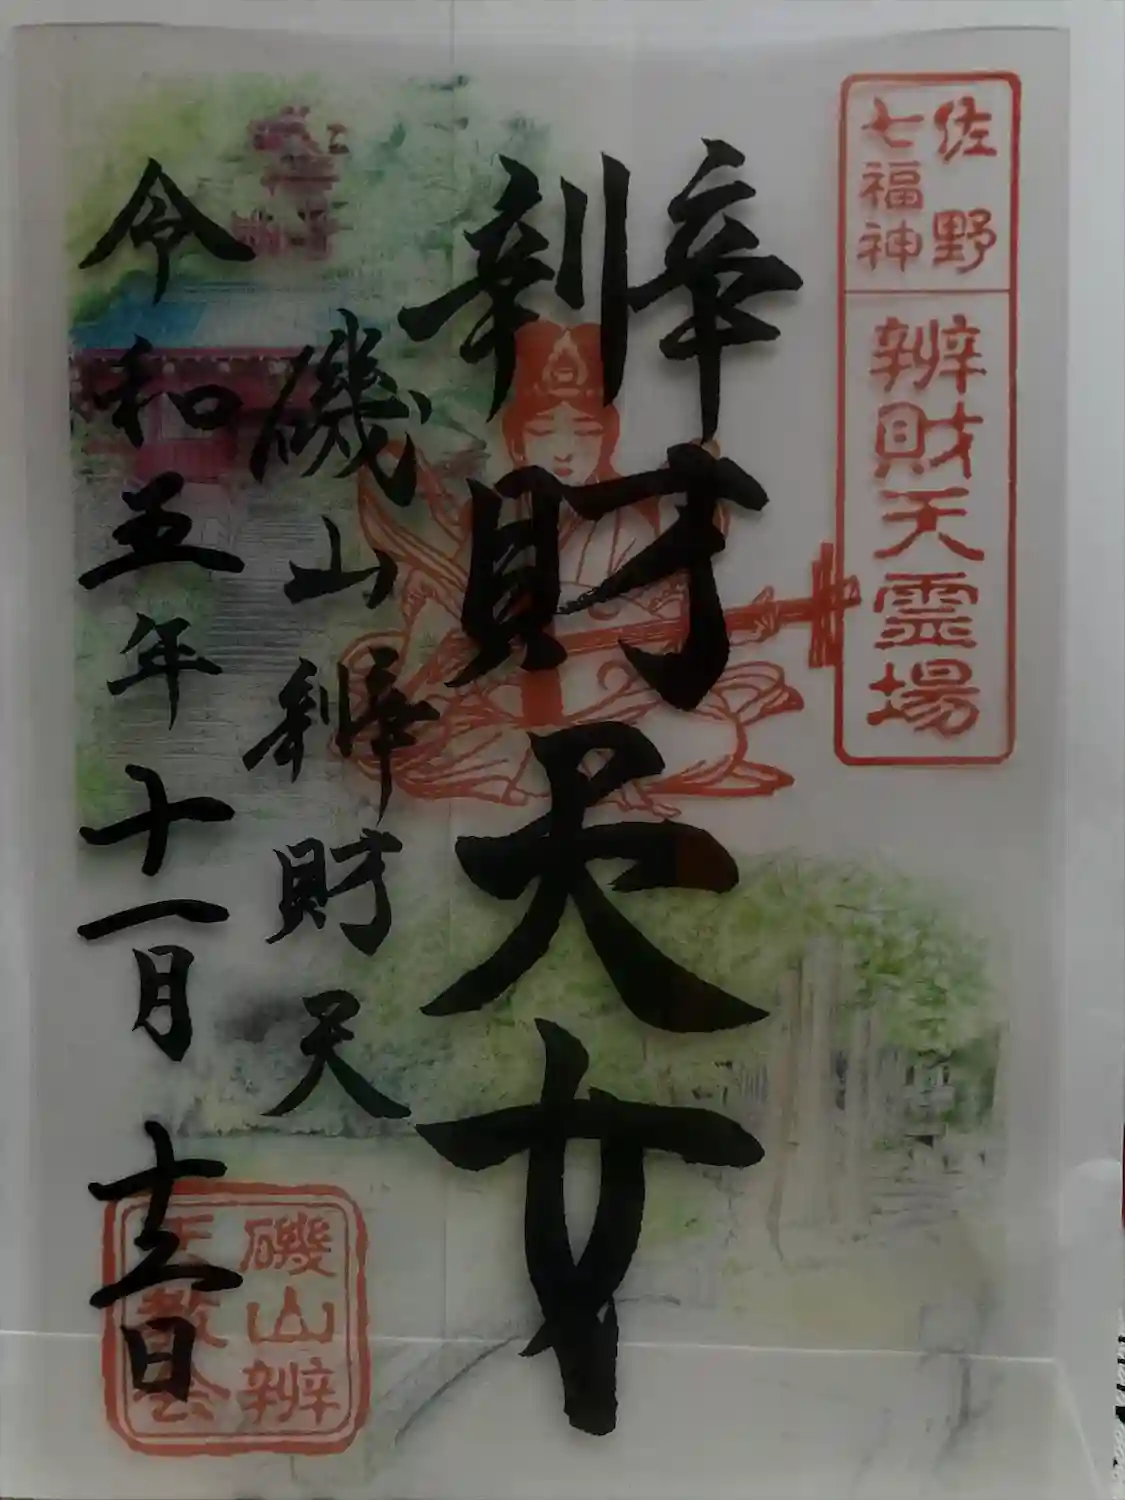 佐野
七福神
辨財天霊場
辨財天女
磯山辨財天
令和五年十一月十二日
磯山辨
教会